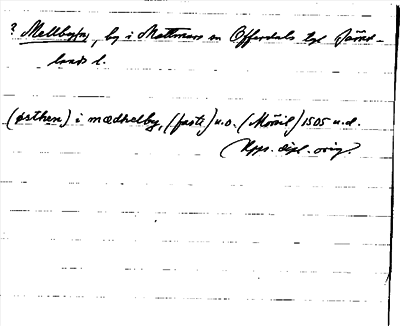 ? Mellbyn, by i Mattmars sn Offerdals tgl Jämt-
lands l.
(østhen) i mædhelby, (faste) u.o. (Mörsil) 1505 u.d.
(Kps. dipl. orig.)